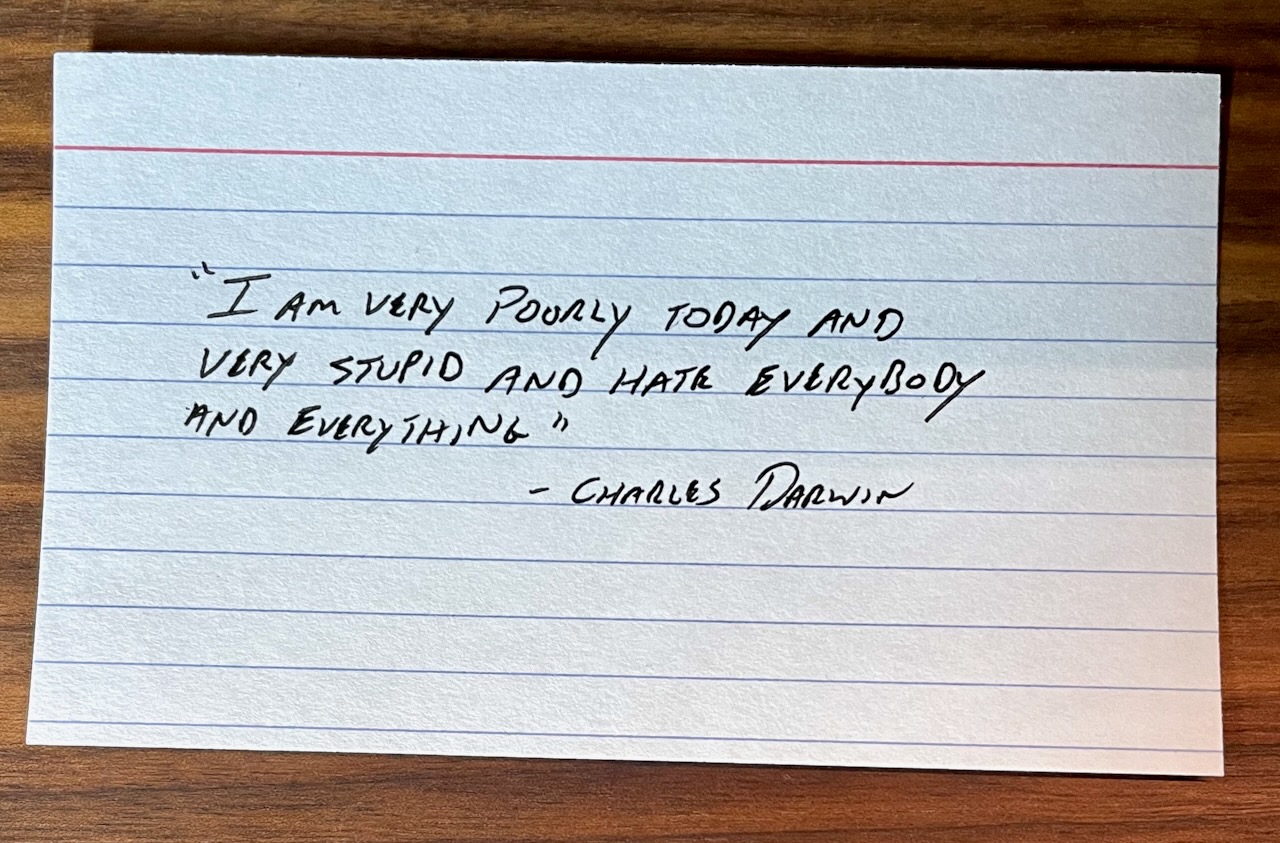 "I AM VERY POORLY TODAY AND
VERY STUPID AND HATE EVERYBODY
AND EVERYTHING"
- CHARLES DARWIN